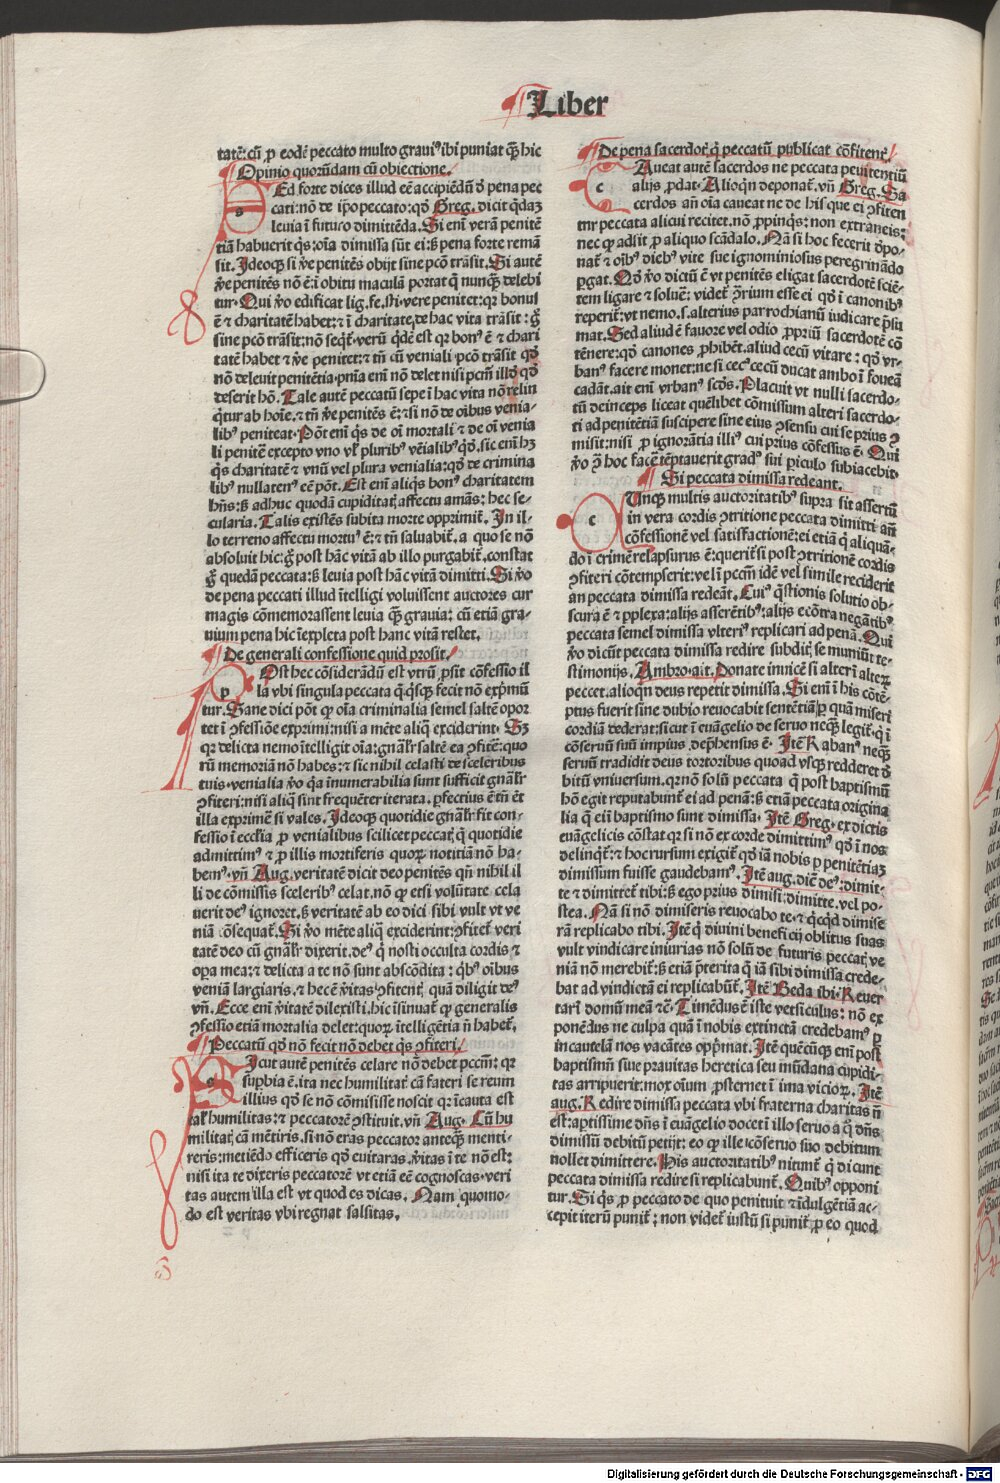 Liber
tatē: cū ꝓ eodē peccato multo graviꝰ ibi puniat̄ qꝫ̄ hic
Opinio quorūdam cū obiectione.
SEd forte dices illud eē accipiēdū d̄ pena pec
cati: nō de ip̄o peccato: qd̓ Greg. dicit q̇daꝫ
levia ī futuro dimittēda. Si enī verā penitē
tiā habuerit q̇s: oīa dimissa sūt ei: sꝫ pena forte remā
sit. Ideoqꝫ si v̓e penitēs obijt sine pctō trāsit. Si autē
v̓e penitēs nō ē: ī obitu maculā portat q̄ nunqꝫ̄ delebi
tur. Qui v̓o edificat lig. fe. sti. vere penitet: qꝛ bonus
ē ⁊ charitatē habet: ⁊ ī charitate de hac vita trāsit: g̊
sine pctō trāsit: nō seqt̄. verū q̇dē est qꝛ bonꝰ ē ⁊ chari
tatē habet ⁊ v̓e penitet: ⁊ tn̄ cū veniali pctō trāsit qd̓
nō delevit penitētia. pnīa enī nō delet nisi pctm̄ illd̓ qd̓
deserit hō. Tale autē peccatū sepe ī hac vita nō relin
q̇tur ab hoīe. ⁊ tn̄ v̓e penitēs ē: ⁊ si nō de oībus venia-
libꝰ peniteat. Pōt enī q̇s de oī mortali ⁊ de oī venia
li penitē excepto uno vl̓ pluribꝰ vēialibꝰ qd̓. sic enī hꝫ
q̇s charitatē ⁊ vnū vel plura venialia: qd̓ de crimina
libꝰ nullatenꝰ eē pōt. Est enī aliq̇s bonꝰ charitatem
hn̄s: sꝫ adhuc quodā cupiditat̄ affectu amās: hec se-
cularia. Talis existēs subita morte opprimit̄. In il-
lo terreno affectu mortuꝰ ē: ⁊ tn̄ saluabit̄. a quo se nō
absoluit hic: g̊ post hāc vitā ab illo purgabit̄. constat
g̊ quedā peccata: sꝫ levia post hāc vitā dimitti. Si v̓o
de pena peccati illud ītelligi voluissent auctores cur
magis cōmemorassent levia qꝫ̄ grauia: cū etiā gra-
uium pena hic īexpleta post hanc vitā restet.
De generali confessione quid prosit.
POst hec cōsiderādū est vtrū ꝓsit cōfessio il
la vbi singula peccata q̄ q̇sqꝫ fecit nō exp̄mū
tur. Sane dici pōt ꝙ oīa criminalia semel saltē opor
tet ī ꝯfessiōe exprimi: nisi a mēte aliq̄ exciderint. Sꝫ
qꝛ delicta nemo ītelligit oīa: gnāl̓r saltē ea ꝯfitet̄: quo
rū memoriā nō habes: ⁊ sic nihil celasti de sceleribus
tuis. venialia v̓o q̇a īnumerabilia sunt sufficit gnāl̓r
ꝯfiteri: nisi aliq̄ sint frequēter iterata. ꝑfectius ē tn̄ et
illa exprimē si vales. Ideoqꝫ quotidie gnāl̓r fit con-
fessio ī eccl̓ia ꝓ venialibus scilicet peccat̄ q̄ quotidie
admittimꝰ ⁊ ꝓ illis mortiferis quoꝝ notitiā nō ha-
bemꝰ. vn̄ Aug. veritatē dicit deo penitēs qn̄ nihil il
li de cōmissis sceleribꝰ celat. nō ꝙ etsi volūtate cela
uerit deꝰ ignoret. sꝫ veritatē ab eo dici sibi vult vt ve
niā ꝯsequat̄. Si v̓o mēte aliq̄ exciderint: ꝯfitet̄ veri
tatē deo cū gnāl̓r dixerit. deꝰ q̇ nosti occulta cordis ⁊
oꝑa mea: ⁊ delicta a te nō sunt abscōdita: q̇bꝰ oībus
veniā largiaris. ⁊ hec ē v̓itas ꝯfitent̄ quā diligit deꝰ
vn̄. Ecce enī v̓itatē dilexisti. hic īsinuat̄ ꝙ generalis
ꝯfessio etiā mortalia delet: quoꝝ ītelligētia nō habet̄.
Peccatū qd̓ nō fecit nō debet q̇s ꝯfiteri.
SIcut autē penitēs celare nō debet pctm̄: qꝛ
suꝑbia ē. ita nec humilitat̄ cā fateri se reum
illius qd̓ se nō cōmisisse noscit qꝛ īcauta est
tal̓ humilitas: ⁊ peccatorē ꝯstituit. vn̄ Aug. Cū hu
militat̄ cā mētiris. si nō eras peccator anteqꝫ̄ menti-
reris: metiēdo efficeris qd̓ euitaras. v̓itas ī te nō est:
nisi ita te dixeris peccatorē vt etiā eē cognoscas. veri
tas autem illa est vt quod es dicas. Nam quomo-
do est veritas vbi regnat falsitas.
De pena sacerdot̄ q̇ peccatū publicat cōfitent̄.
CAueat autē sacerdos ne peccata penitentiū
alijs ꝓdat. Alioqn̄ deponat̄. vn̄ Greg. Sa
cerdos an̄ oīa caueat ne de his que ei ꝯfiten
tur peccata alicui recitet. nō ꝓpinq̇s: non extraneis:
nec ꝙ adsit ꝓ aliquo scādalo. Nā si hoc fecerit d̓po-
nat̄ ⁊ oībꝰ diebꝰ vite sue ignominiosus peregrinādo
ꝑgat. Qd̓ v̓o dictū ē vt penitēs eligat sacerdotē sciē-
tem ligare ⁊ soluē: videt̄ ꝯ̄rium esse ei qd̓ ī canonibꝰ
reperit̄: vt nemo. s. alterius parrochianū iudicare p̄su
mat. Sed aliud ē fauore vel odio ꝓpriū sacerdotē cō
tēnere: qd̓ canones ꝓhibēt. aliud cecū vitare: qd̓ vr-
banꝰ facere monet: ne si cecꝰ cecū ducat ambo ī foueā
cadāt. ait enī vrbanꝰ scd̓s. Placuit vt nulli sacerdo-
tū deinceps liceat quēlibet cōmissum alteri sacerdo-
ti ad penitētiā suscipere sine eius ꝯsensu cui se prius ꝯ
misit: nisi ꝓ ignorātia illiꝰ cui prius cōfessus ē. Qui
v̓o ꝯ̄ hoc facē tēptauerit gradꝰ sui ꝑiculo subiacebit.
Si peccata dimissa redeant.
CUnqꝫ multis auctoritatibꝰ supra sit assertū
in vera cordis ꝯtritione peccata dimitti an̄
cōfessionē vel satisfactionē: ei etiā q̇ aliquā-
do ī crimē relapsurus ē: querit̄ si post ꝯtritionē cordis
ꝯfiteri cōtempserit: vel ī pctm̄ idē vel simile reciderit
an peccata dimissa redeāt. Cuiꝰ q̄stionis solutio ob-
scura ē ⁊ ꝑplexa: alijs asserētibꝰ: alijs ecōtra negātibꝰ
peccata semel dimissa vlteriꝰ replicari ad penā. Qui
v̓o dicūt peccata dimissa redire subdit̄ se muniūt te-
stimonijs. Ambro. ait. Donate invicē si alter ī alteꝝ
peccet. alioqn̄ deus repetit dimissa. Si enī ī his cōtē-
ptus fuerit sine dubio reuocabit sententiā ꝑ quā miseri
cordiā dederat: sicut ī euāgelio de seruo neqꝫ̄ legit̄. q̇ ī
cōseruū suū impius dep̄hensus ē. Itē Rabanꝰ neqꝫ̄
seruū tradidit deus tortoribus quoad vsqꝫ redderet d̓
bitū vniuersum. qꝛ nō solū peccata q̄ post baptismū
hō egit reputabunt̄ ei ad penā: sꝫ etiā peccata origina
lia q̄ ei ī baptismo sunt dimissa. Itē Greg. ex dictis
euāgelicis cōstat qꝛ si nō ex corde dimittimꝰ qd̓ ī nos
delinqt̄: ⁊ hoc rursum exigit̄ qd̓ iā nobis ꝑ penitētiaꝫ
dimissum fuisse gaudebamꝰ. Itē aug. diē deꝰ: dimit-
te ⁊ dimittet̄ tibi: sꝫ ego prius dimisi: dimitte. vel po-
stea. Nā si nō dimiseris reuocabo te. ⁊ q̇cq̇d dimise
rā replicabo tibi. Itē q̇ diuini beneficij oblitus suas
vult vindicare iniurias nō solū de futuris peccat̄ ve
niā nō merebit̄: sꝫ etiā p̄terita q̄ iā sibi dimissa crede-
bat ad vindictā ei replicabūt̄. Itē Beda ibi. Reuer
tar ī domū meā ⁊ē. Timēdus ē iste versiculus: nō ex
ponēdus ne culpa quā ī nobis extinctā credebamꝰ ꝑ
incautelā nos vacātes opp̄mat. Itē quēcūqꝫ enī post
baptismū siue prauitas heretica seu mūdana cupidi-
tas arripuerit: mox oīum ꝓsternet ī ima vicioꝝ. Itē
aug. Redire dimissa peccata vbi fraterna charitas nō
est: aptissime dn̄s ī euāgelio docet ī illo seruo a q̊ dn̄s
dimissū debitū petijt: eo ꝙ ille cōseruo suo debitum
nollet dimittere. His auctoritatibꝰ nitunt̄ q̇ dicunt
peccata dimissa redire si replicabunt̄. Quibꝰ opponi
tur. Si q̇s ꝓ peccato de quo penituit ⁊ īdulgētiā ac-
cepit iterū punit̄: non videt̄ iustū si punit̄ ꝓ eo quod
Digitalisierung gefördert durch die Deutsche Forschungsgemeinschaft - DFG